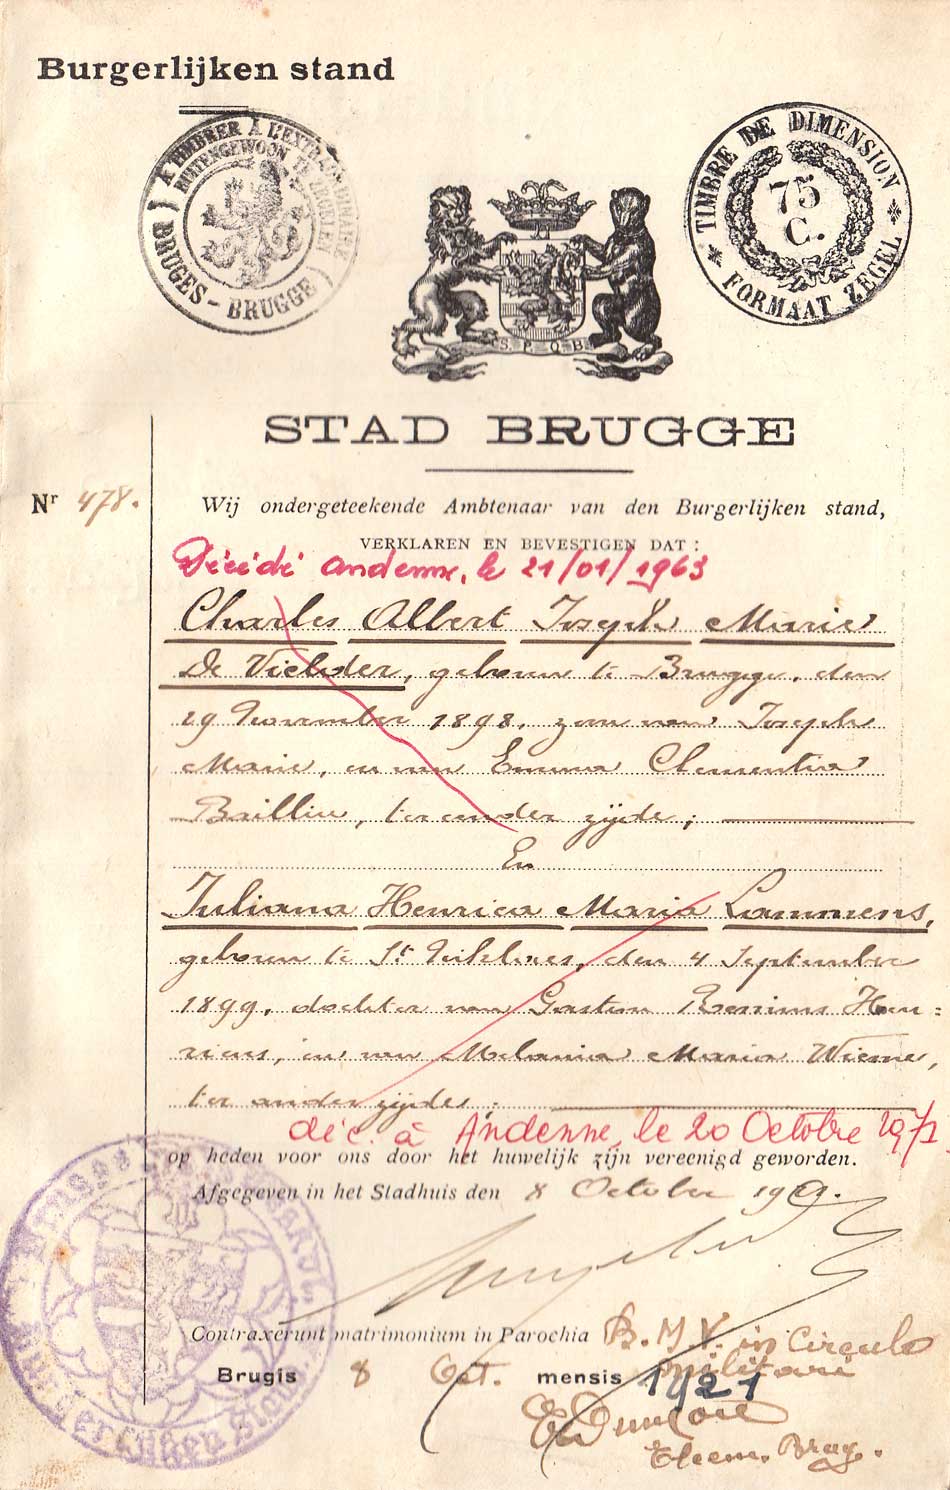 Burgerlijken stand
A TIMBRER A L'EXTRAORDINAIRE
BUITENGEWOON TE ZEGELEN
BRUGES - BRUGGE
TIMBRE DE DIMENSION
75
C.
FORMAAT ZEGEL
S. P. Q. B.
STAD BRUGGE
Nr 478.
Wij ondergeteekende Ambtenaar van den Burgerlijken stand,
VERKLAREN EN BEVESTIGEN DAT :
Andenne, le 21/01/1963
Charles Albert Joseph Marie
De Vielder, geboren te Brugge, den
19 November 1898, zoon van Joseph
Marie, en van Emma Clementia
ter eender zijde ;
En
Juliana Henrica Maria Lammens,
geboren te St Niklaes, den 4 September
1899, dochter van Gaston Hen=
ricus, en van Melania Maria
ter ander zijde.
déc. à Andenne, le 20 Octobre 1971
op heden voor ons door het huwelijk zijn vereenigd geworden.
Afgegeven in het Stadhuis den 8 October 19
Contraxerunt matrimonium in Parochia B.M.V. in Circulo
militari
Brugis 8 Oct. mensis 1921
Eleem. Brug.